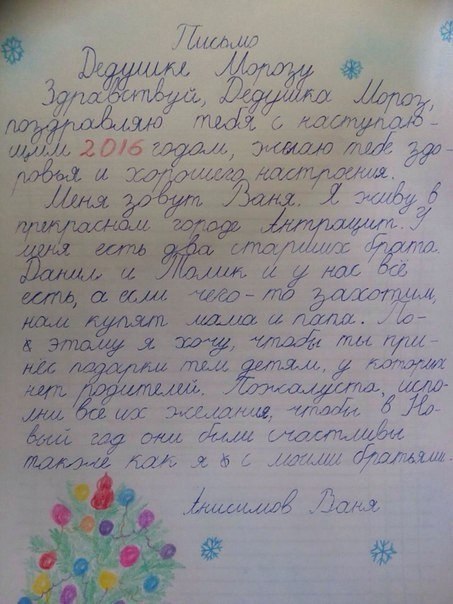 Письмо
Дедушке Морозу
Здравствуй, Дедушка Мороз,
поздравляю тебя с наступаю-
щим 2016 годом, желаю тебе здо-
ровья и хорошего настроения.
Меня зовут Ваня. Я живу в
прекрасном городе Антрацит. У
меня есть два старших брата.
Данил и Толик и у нас всё
есть, а если чего-то захотим,
нам купят мама и папа. По-
этому я хочу, чтобы ты при-
нёс подарки тем детям, у которых
нет родителей. Пожалуста, испо-
лни все их желания, чтобы в Но-
вый год они были счастливы
также как я с моими братьями.
Анисимов Ваня